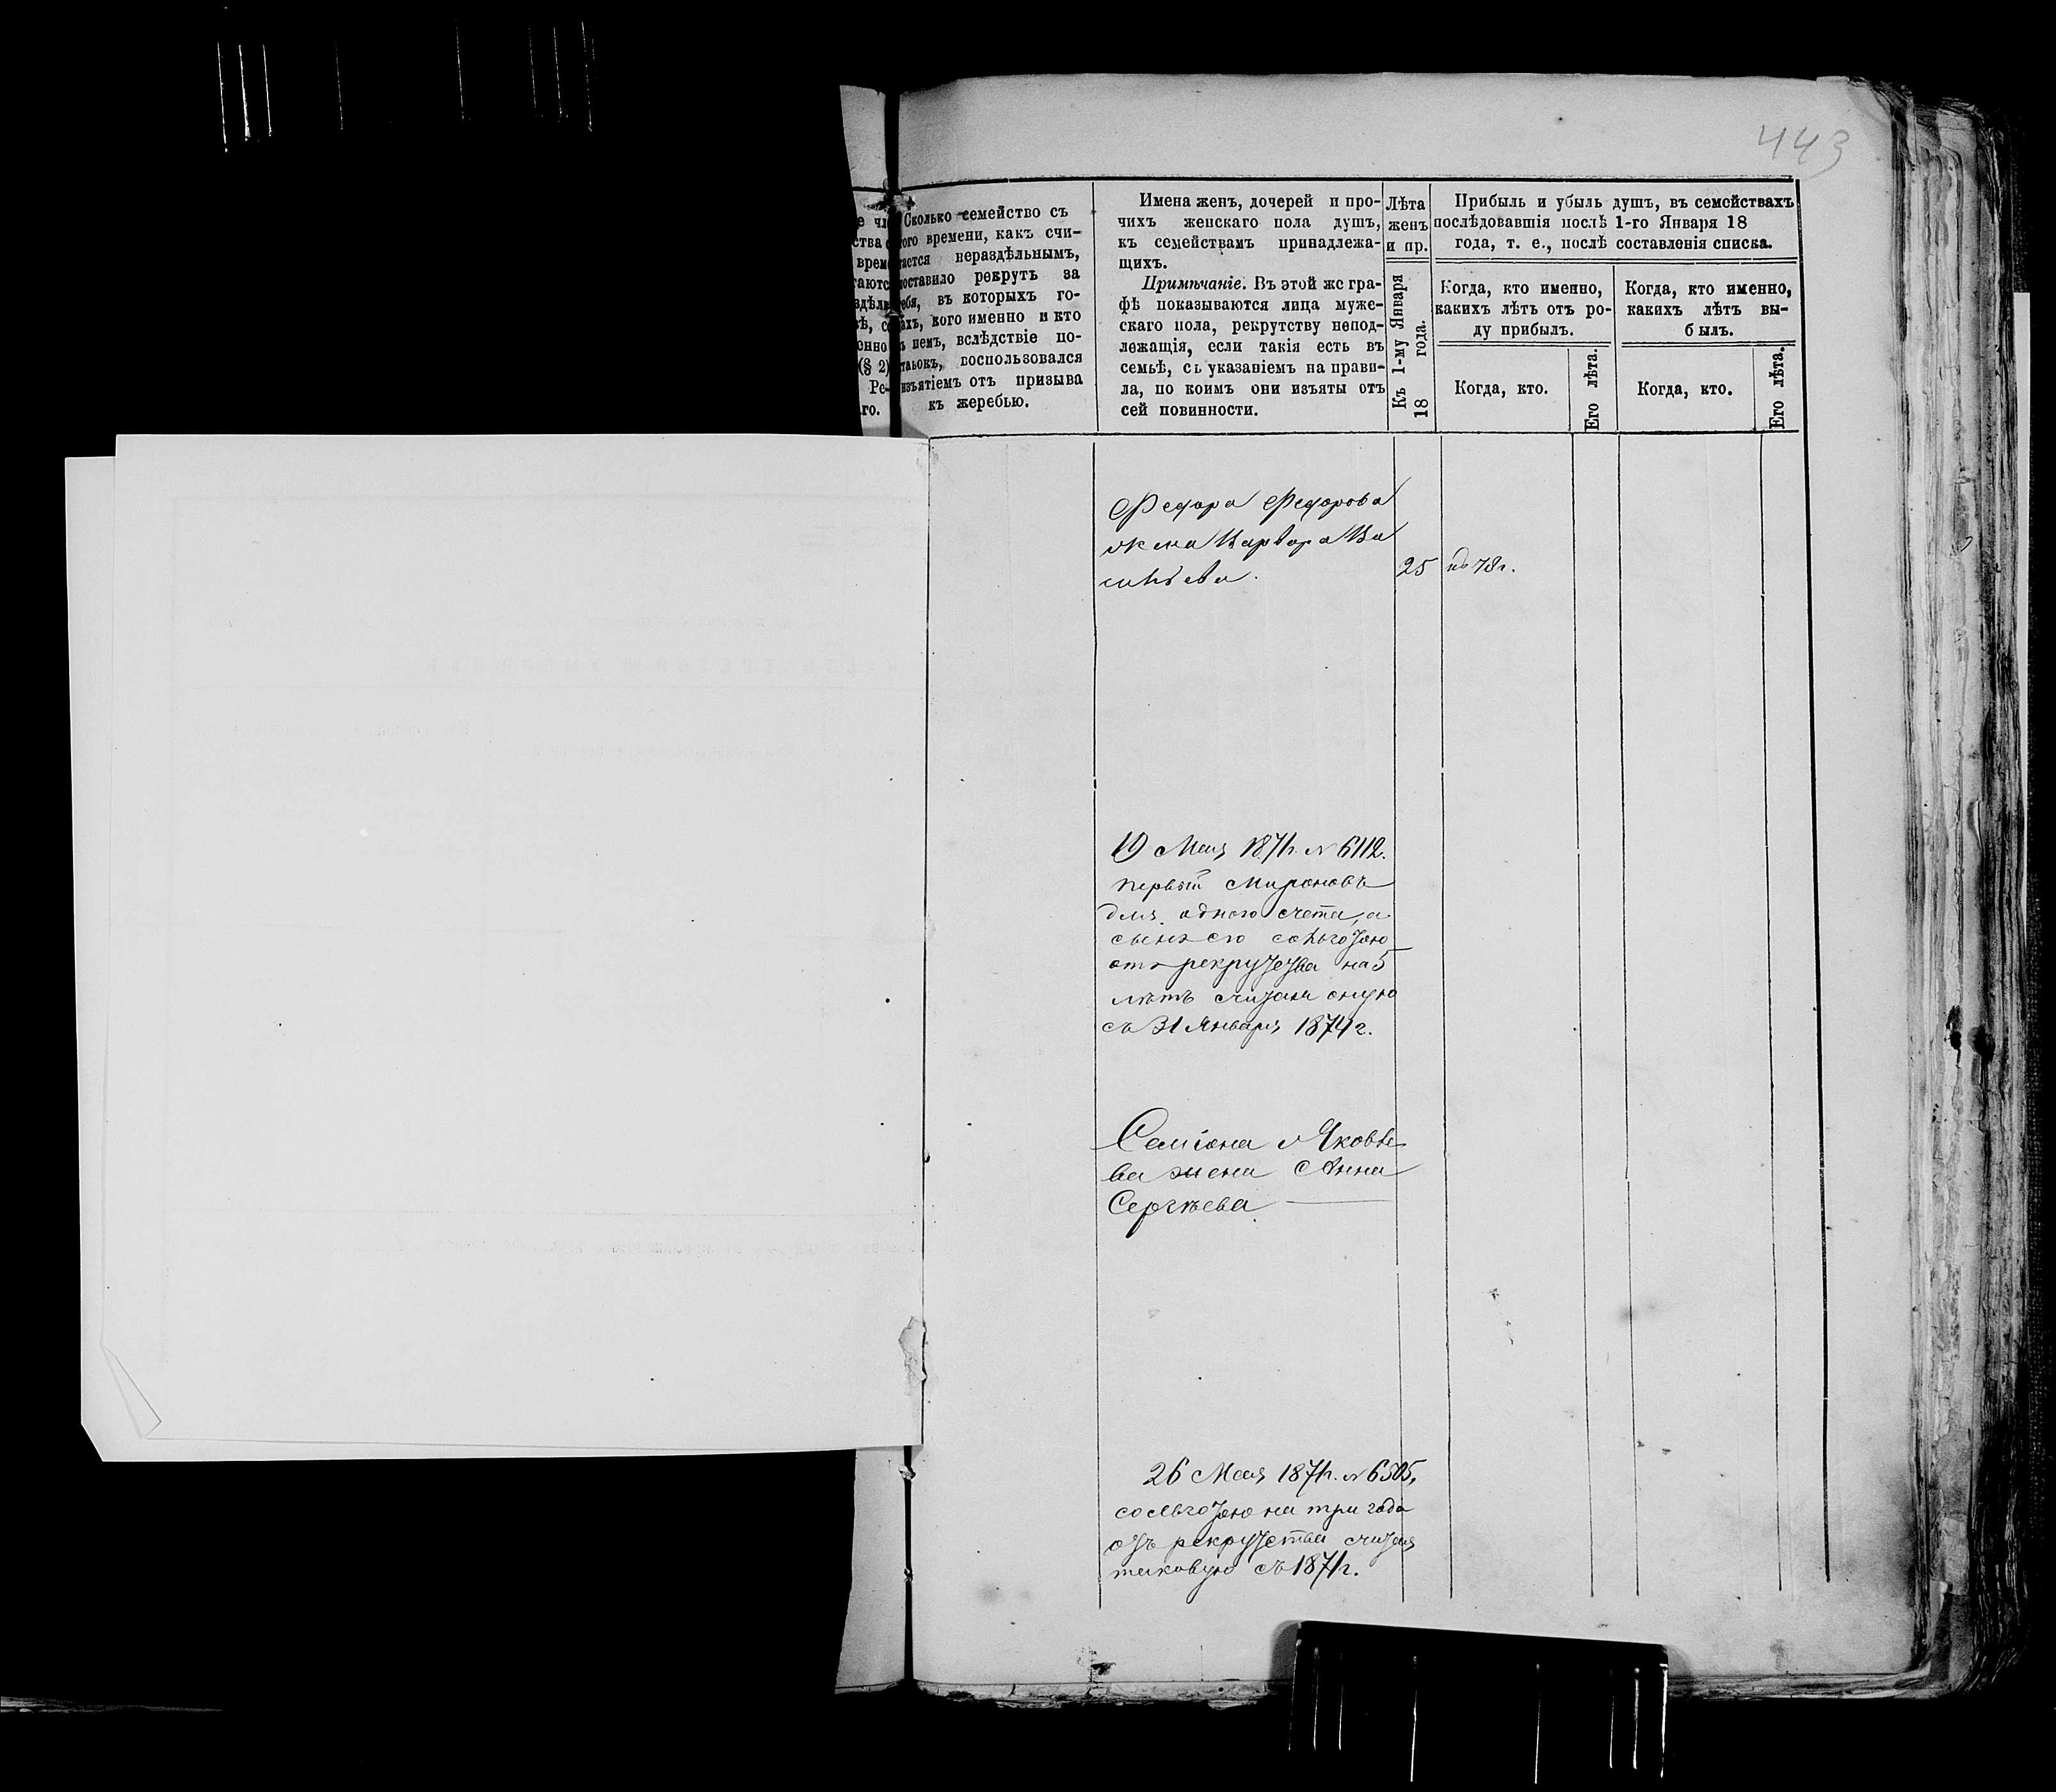 443
е чл
ства о
време
таютс
здѣль
вѣ, с
енно
(§ 2)
Ре-
го.
Сколько семейство съ
того времени, какъ счи-
тается нераздѣльнымъ,
поставило рекрутъ за
себя, въ которыхъ го-
дахъ, кого именно и кто
въ немъ, вслѣдствіе по-
воспользовался
изъятіемъ отъ призыва
къ жеребью.
Имена женъ, дочерей и про-
чихъ женскаго пола душъ,
къ семействамъ принадлежа-
щихъ.
Примѣчаніе. Въ этой же гра-
фѣ показываются лица муже-
скаго пола, рекрутству непод-
лежащія, если такія есть въ
семьѣ, съ указаніемъ на прави-
ла, по коимъ они изъяты отъ
сей повинности.
Лѣта
женъ
и пр.
Къ 1-му Января
18 года.
Прибыль и убыль душъ, въ семействахъ
послѣдовавшія послѣ 1-го Января 18
года, т. е., послѣ составленія списка.
Когда, кто именно,
какихъ лѣтъ отъ ро-
ду прибылъ.
Когда, кто.
Его лѣта.
Когда, кто именно,
какихъ лѣтъ вы-
былъ.
Когда, кто.
Его лѣта.
Федора Федорова
жена Варвара Ва
сильева.
25
78г.
19 Мая 1871г. № 6112.
первый Мироновъ
для одного счета, а
сынъ его сольготою
отъ рекрутства на 5
лѣтъ считая оную
съ 31 Января 1874г.
Семіона Яковле
ва жена Анна
Сергѣева
26 Мая 1871г. № 6505,
сольготою на три года
отъ рекрутства считая
таковую съ 1871г.